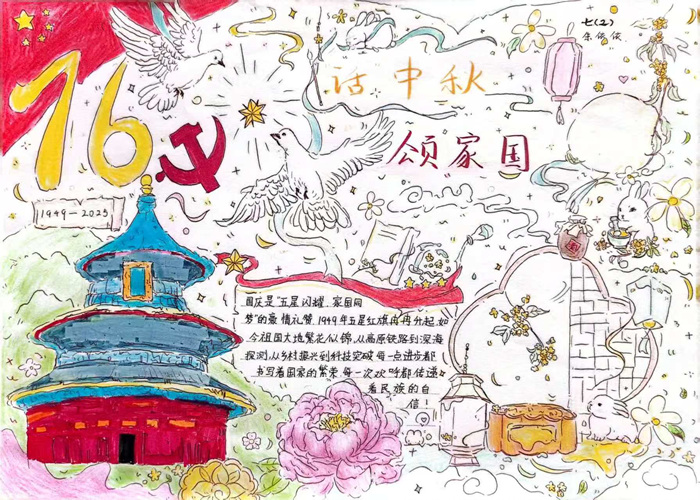 七(2)
76
话中秋
颂家国
1949-2025
国庆是"五星闪耀 家国同
梦"的豪情礼赞, 1949年五星红旗冉冉升起, 如
今祖国大地繁花似锦, 从高原铁路到深海
探测, 从乡村振兴到科技突破 每一点进步都
书写着国家的繁荣 每一次欢呼都传递
着民族的自
信!